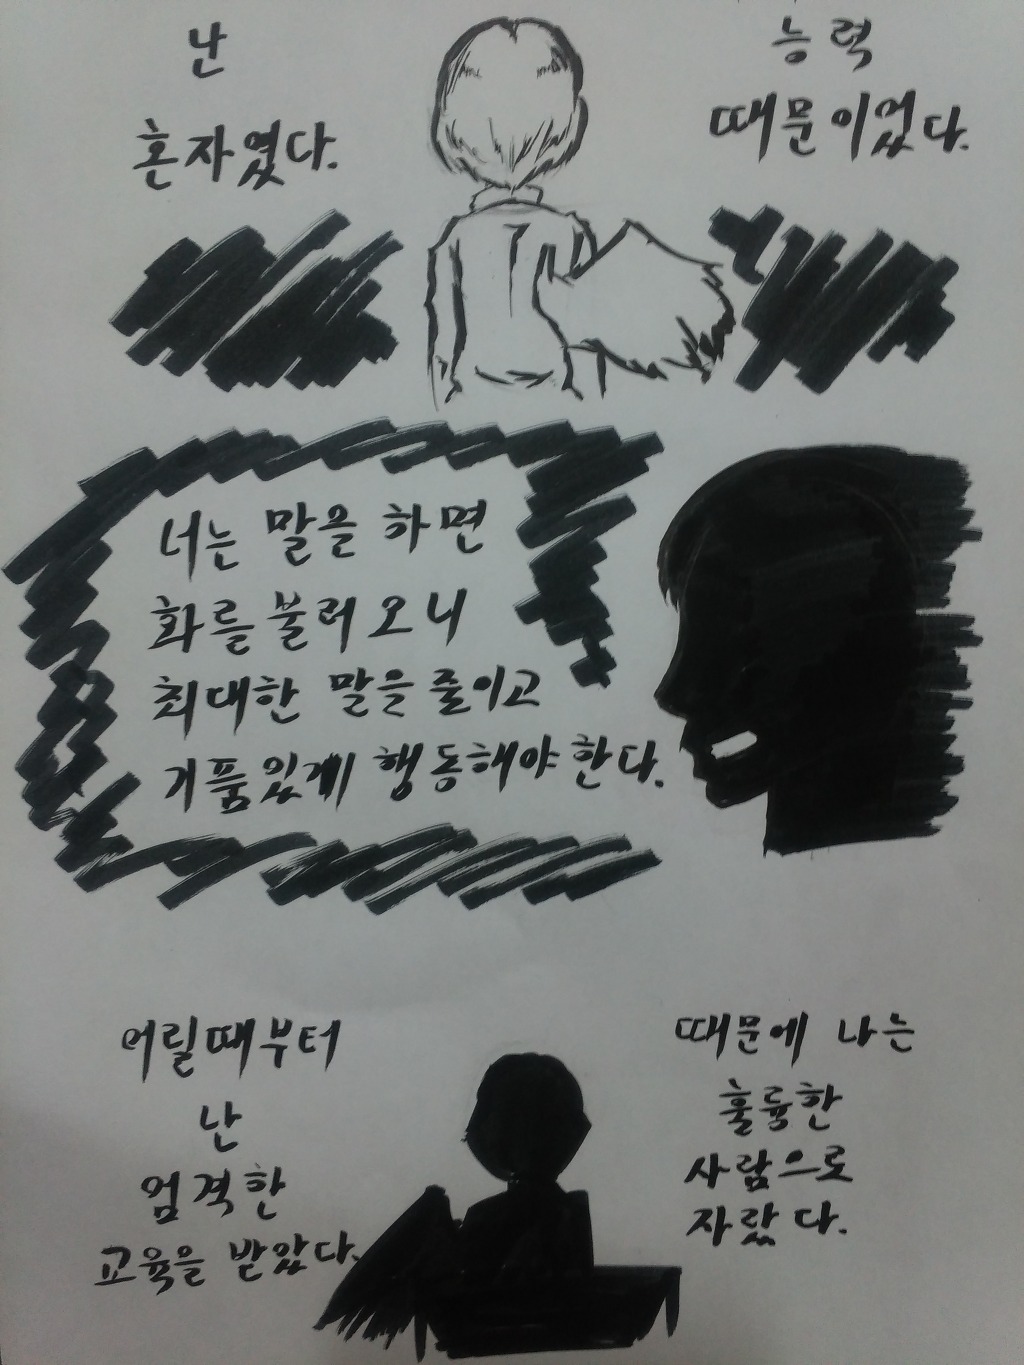 난
혼자였다.
능력
때문이었다.
너는 말을 하면
화를 불러 오니
최대한 말을 줄이고
기품있게 행동해야 한다.
어릴때부터
난
엄격한
교육을 받았다.
때문에 나는
훌륭한
사람으로
자랐다.